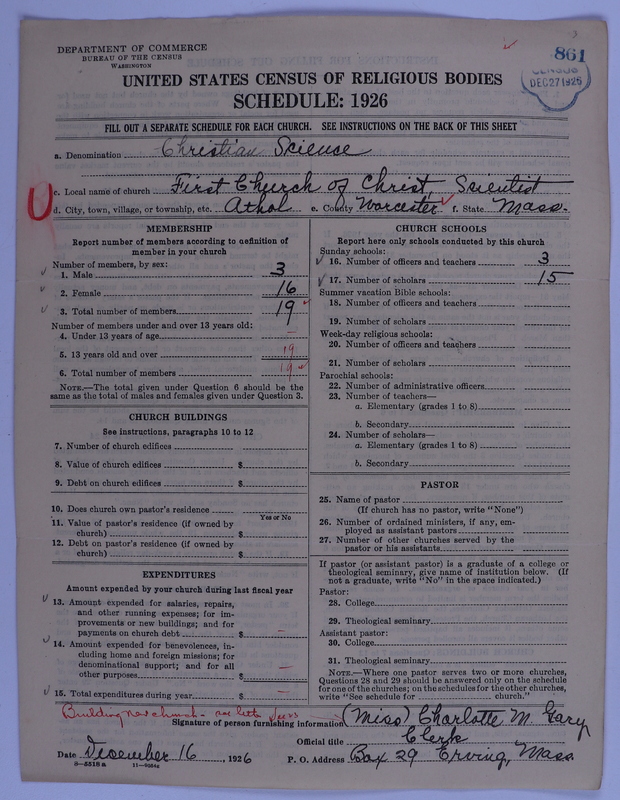 861
CENSUS
DEC 27 1926
DEPARTMENT OF COMMERCE
BUREAU OF THE CENSUS
WASHINGTON
UNITED STATES CENSUS OF RELIGIOUS BODIES
SCHEDULE: 1926
FILL OUT A SEPARATE SCHEDULE FOR EACH CHURCH. SEE INSTRUCTIONS ON THE BACK OF THIS SHEET
a. Denomination Christian Science
c. Local name of church First Church of Christ, Scientist
d. City, town, village, or township, etc. Athol e. County Worcester f. State Mass.
MEMBERSHIP
Report number of members according to definition of
member in your church
Number of members, by sex:
1. Male 3
2. Female 16
3. Total number of members 19
Number of members under and over 13 years old:
4. Under 13 years of age —
5. 13 years old and over 19
6. Total number of members 19
NOTE.—The total given under Question 6 should be the
same as the total of males and females given under Question 3.
CHURCH BUILDINGS
See instructions, paragraphs 10 to 12
7. Number of church edifices
8. Value of church edifices $
9. Debt on church edifices $
10. Does church own pastor's residence
Yes or No
11. Value of pastor's residence (if owned by
church) $
12. Debt on pastor's residence (if owned by
church) $
EXPENDITURES
Amount expended by your church during last fiscal year
13. Amount expended for salaries, repairs,
and other running expenses; for im-
provements or new buildings; and for
payments on church debt $ —
14. Amount expended for benevolences, in-
cluding home and foreign missions; for
denominational support; and for all
other purposes $ —
15. Total expenditures during year $ —
CHURCH SCHOOLS
Report here only schools conducted by this church
Sunday schools:
16. Number of officers and teachers 3
17. Number of scholars 15
Summer vacation Bible schools:
18. Number of officers and teachers
19. Number of scholars
Week-day religious schools:
20. Number of officers and teachers
21. Number of scholars
Parochial schools:
22. Number of administrative officers
23. Number of teachers—
a. Elementary (grades 1 to 8)
b. Secondary
24. Number of scholars—
a. Elementary (grades 1 to 8)
b. Secondary
PASTOR
25. Name of pastor
(If church has no pastor, write "None")
26. Number of ordained ministers, if any, em-
ployed as assistant pastors
27. Number of other churches served by the
pastor or his assistants
If pastor (or assistant pastor) is a graduate of a college or
theological seminary, give name of institution below. (If
not a graduate, write "No" in the space indicated.)
Pastor:
28. College
29. Theological seminary
Assistant pastor:
30. College
31. Theological seminary
NOTE.—Where one pastor serves two or more churches,
Questions 28 and 29 should be answered only on the schedule
for one of the churches; on the schedules for the other churches,
write "See schedule for church."
Building new church - see letter
Signature of person furnishing information (Miss) Charlotte M. Gary
Official title Clerk
Date December 16, 1926 P. O. Address Box 29 Erving, Mass
8—5518 a